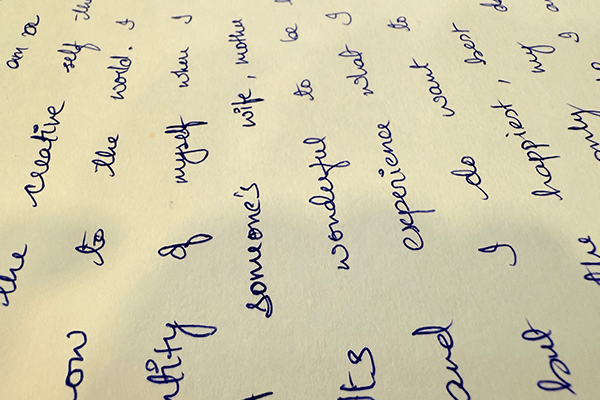 am a
the creative self the
ow to the world. I
ntity of myself when I
someone's wife, mother
Its wonderful to be
and experience what I
but I do want to
the happiest, best
only my
I